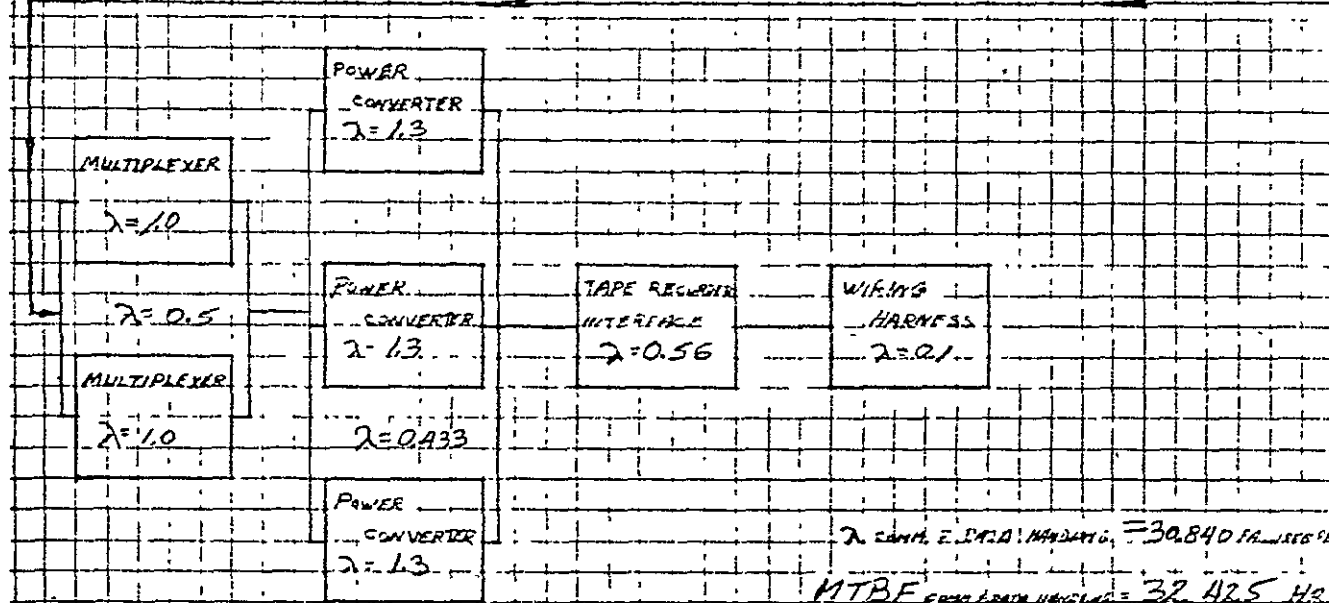 POWER
CONVERTER
λ=1.3
MULTIPLEXER
λ=1.0
λ=0.5
MULTIPLEXER
λ=1.0
POWER
CONVERTER
λ-1.3
λ=0.433
POWER
CONVERTER
λ=1.3
TAPE RECORDER
INTERFACE
λ=0.56
WIRING
HARNESS
λ=0.1
λ COMM. & DATA HANDLING =30.840
MTBF COMM & DATA HANDLING = 32 425 HR